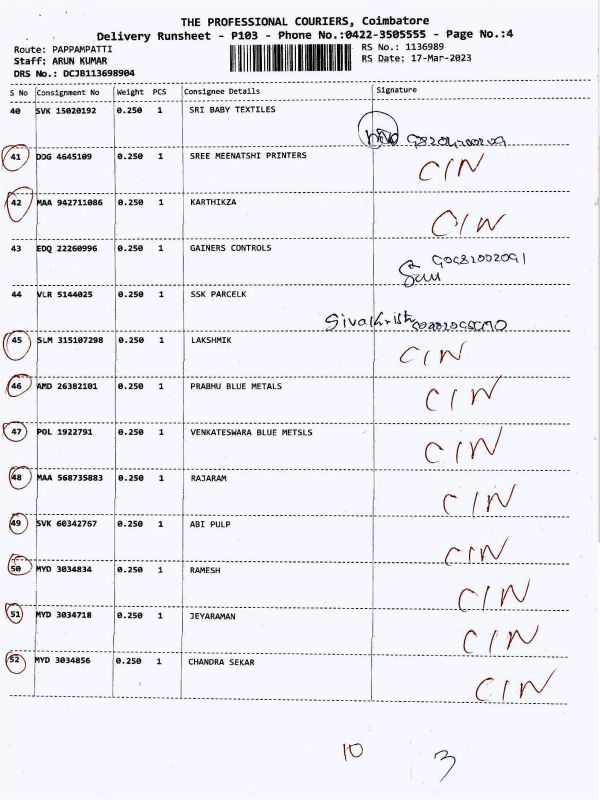 THE PROFESSIONAL COURIERS, Coimbatore
Delivery Runsheet - P103 - Phone No.:0422-3505555 - Page No.:4
Route: PAPPAMPATTI RS No.: 1136989
Staff: ARUN KUMAR RS Date: 17-Mar-2023
DRS No.: DCJB113698904
S No Consignment No Weight PCS Consignee Details Signature
40 SVK 15020192 0.250 1 SRI BABY TEXTILES
41 DDG 4645109 0.250 1 SREE MEENATSHI PRINTERS
CIN
42 MAA 942711086 0.250 1 KARTHIKZA
CIN
43 EDQ 22260996 0.250 1 GAINERS CONTROLS
44 VLR 5144025 0.250 1 SSK PARCELK
45 SLM 315107298 0.250 1 LAKSHMIK
CIN
46 AMD 26382101 0.250 1 PRABHU BLUE METALS
CIN
47 POL 1922791 0.250 1 VENKATESWARA BLUE METSLS
CIN
48 MAA 568735883 0.250 1 RAJARAM
CIN
49 SVK 60342767 0.250 1 ABI PULP
CIN
50 MYD 3034834 0.250 1 RAMESH
CIN
51 MYD 3034718 0.250 1 JEYARAMAN
CIN
52 MYD 3034856 0.250 1 CHANDRA SEKAR
CIN
10 3